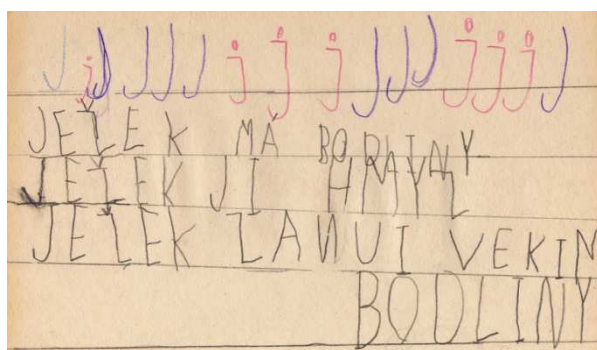 J j J J J J j j j J J J j j j J
JEŽEK MÁ BODLINY
JEŽEK JI
JEŽEK VEKIN
BODLINY